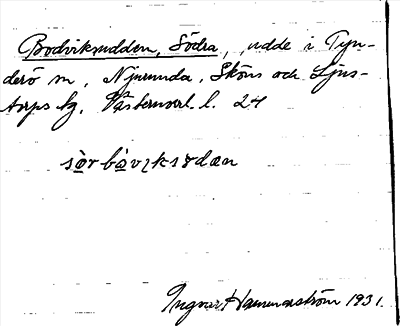 Bodviksudden, Södra, udde i Tyn-
derö sn, Njurunda, Sköns och Ljus-
torps tg. Västernorrl. l. 24
Ingvar Hammarström 1931.